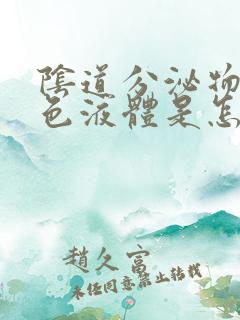 陰道分泌物
色液體是怎
趙久富
未經同意禁止轉載